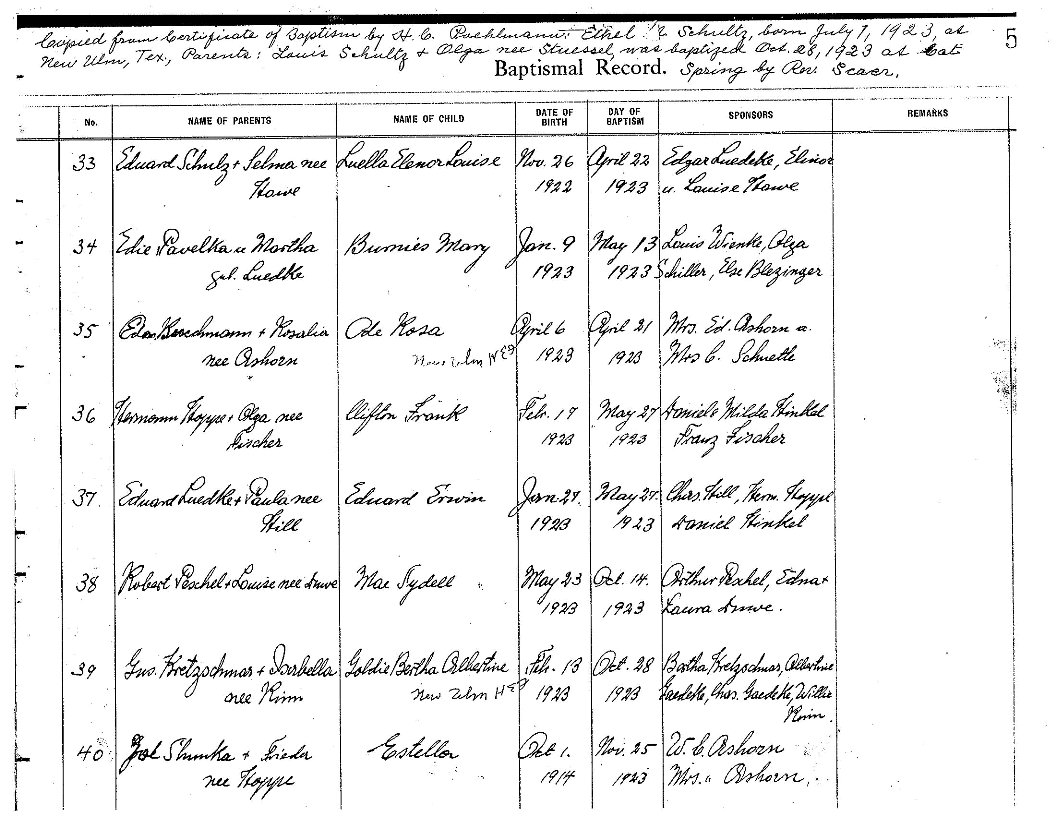 Copied from Certificate of Baptism by H. C. Poehlmann: Ethel Schultz, born July 7, 1923, at
New Ulm, Tex., Parents: Louis Schultz + Olga nee Stuessel, was baptized Oct. 28, 1923 at Cat
Spring by Rev. Scaer.
5
Baptismal Record.
No. NAME OF PARENTS NAME OF CHILD DATE OF BIRTH DAY OF BAPTISM SPONSORS REMARKS
33 Eduard Schulz + Selma nee Luella Elenor Louise Nov. 26 April 22 Edgar Luedeke, Elinor
Howe 1922 1923 u. Louise Howe
34 Edie Pavelka u Martha Burnies Mary Jan. 9 May 13 Louis Wienke, Olga
geb. Luedke 1923 1923 Schiller, Else Blezinger
35 + Rosalia Ode Rosa April 6 April 21 Mrs. Ed. Ashorn u.
nee Ashorn New Ulm H E 1923 1923 Mrs C. Schuette
36 Hermann Hoppe + Olga nee Clifton Frank Feb. 17 May 27 Daniel & Milda Hinkel
Fischer 1923 1923 Franz Fischer
37. Eduard Luedke + Paula nee Eduard Erwin Jan 27. May 27. Chas. Hill, Herm. Hoppe
Hill 1923 1923 Daniel Hinkel
38 Robert Peschel + Louise nee Duwe Mae Fydell May 23 Oct. 14. Arthur Peschel, Edna +
1923 1923 Laura Duwe.
39 Gus. Kretzschmar + Isabella Goldie Bertha Albertine Feb. 13 Oct. 28 Bertha Kretzschmar, Albertine
nee Rinn New Ulm H E 1923 1923 Gaedeke, Chas. Gaedeke, Willie
Rinn.
40 Shumka + Frieda Estella Oct 1. Nov. 25 W. C. Ashorn
nee Hoppe 1914 1923 Mrs. " Ashorn.